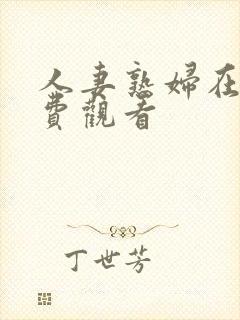 人妻熟婦在
費觀看
丁世芳